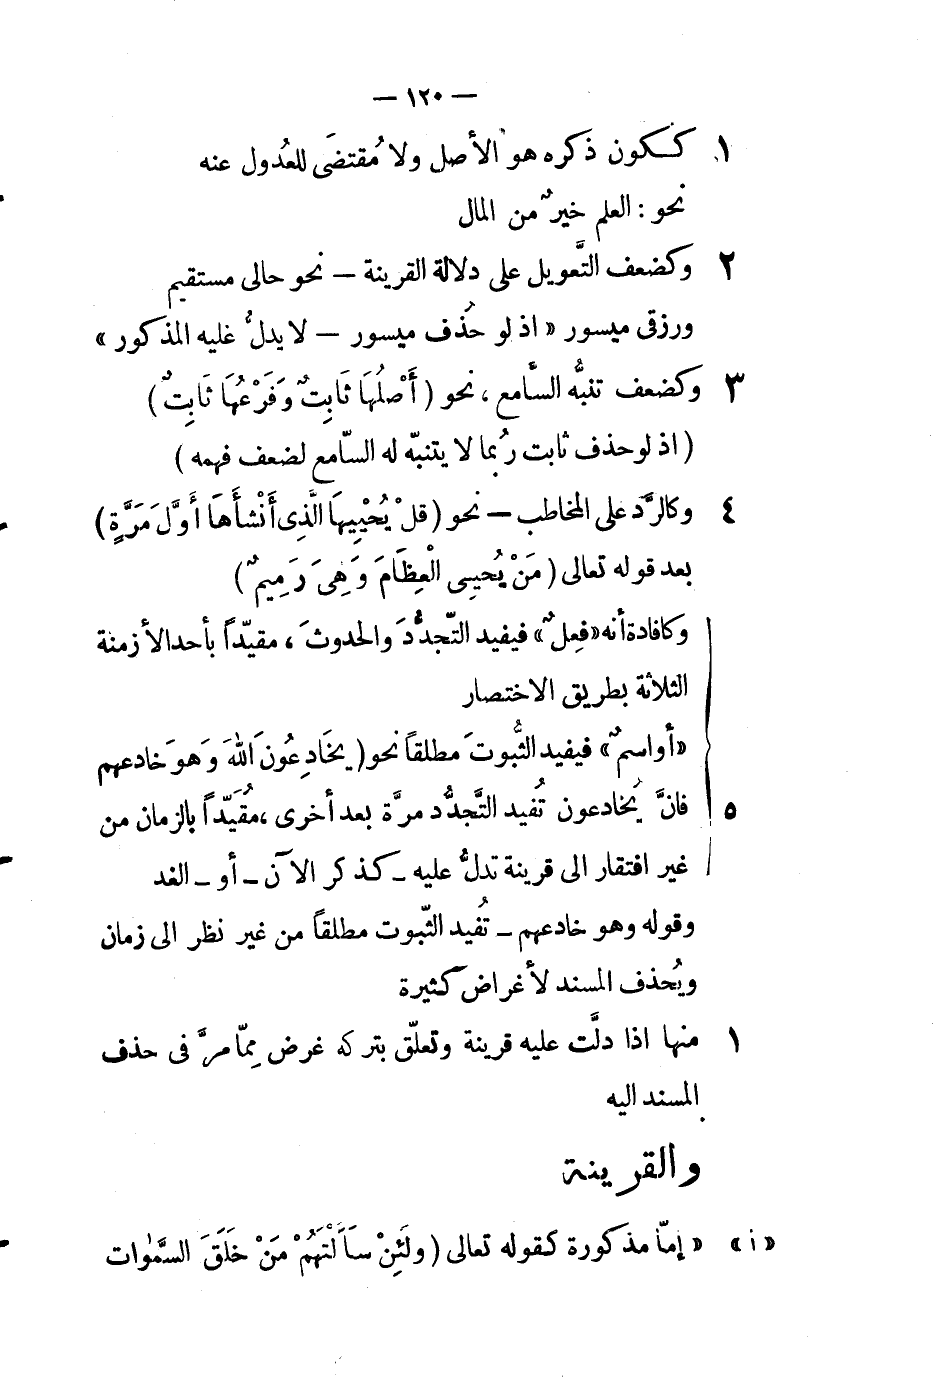 — ١٢٠ —
١ ككون ذكره هو الأصل ولا مُقتضَى للعُدول عنه
نحو : العلم خيرٌ من المال
٢ وكضعف التَّعويل على دلالة القرينة — نحو حالى مستقيم
ورزقى ميسور « اذ لو حُذف ميسور — لا يدلُّ عليه المذكور »
٣ وكضعف تنبُّه السَّامع ، نحو ( أَصْلُهَا ثَابِتٌ وَفَرْعُهَا ثَابِتٌ )
( اذ لو حذف ثابت رُبما لا يتنبّه له السّامع لضعف فهمه )
٤ وكالرَّد على المخاطب — نحو ( قلْ يُحْيِيهَا الَّذِى أَنْشأَهَا أَوَّلَ مَرَّةٍ )
بعد قوله تعالى ( مَنْ يُحيِى الْعِظَامَ وَهِىَ رَمِيمٌ )
وكافادة أنه « فِعلٌ » فيفيد التّجدُّدَ والحدوثَ ، مقيّداً بأحد الأزمنة
الثلاثة بطريق الاختصار
« أواسمٌ » فيفيد الثُّبوتَ مطلقاً نحو ( يخَادِعُونَ اللهَ وَهوَ خادعهم
٥ فانَّ يُخادعون تُفيد التَّجدُّد مرَّة بعد أخرى ، مقُيَّداً بالزمان من
غير افتقار الى قرينة تدلُّ عليه ـ كذكر الآن ـ أو ـ الغد
وقوله وهو خادعهم ـ تُفيد الثّبوت مطلقاً من غير نظر الى زمان
ويُحذف المسند لأغراض كثيرة
١ منها اذا دلَّت عليه قرينة وتعلّق بتركه غرض مِمّا مرَّ فى حذف
المسند اليه
والقرينة
« ا » « إمّا مذكورة كقوله تعالى ( ولَئِنْ سَأَلْتَهُمْ مَنْ خَلَقَ السَّمٰوات